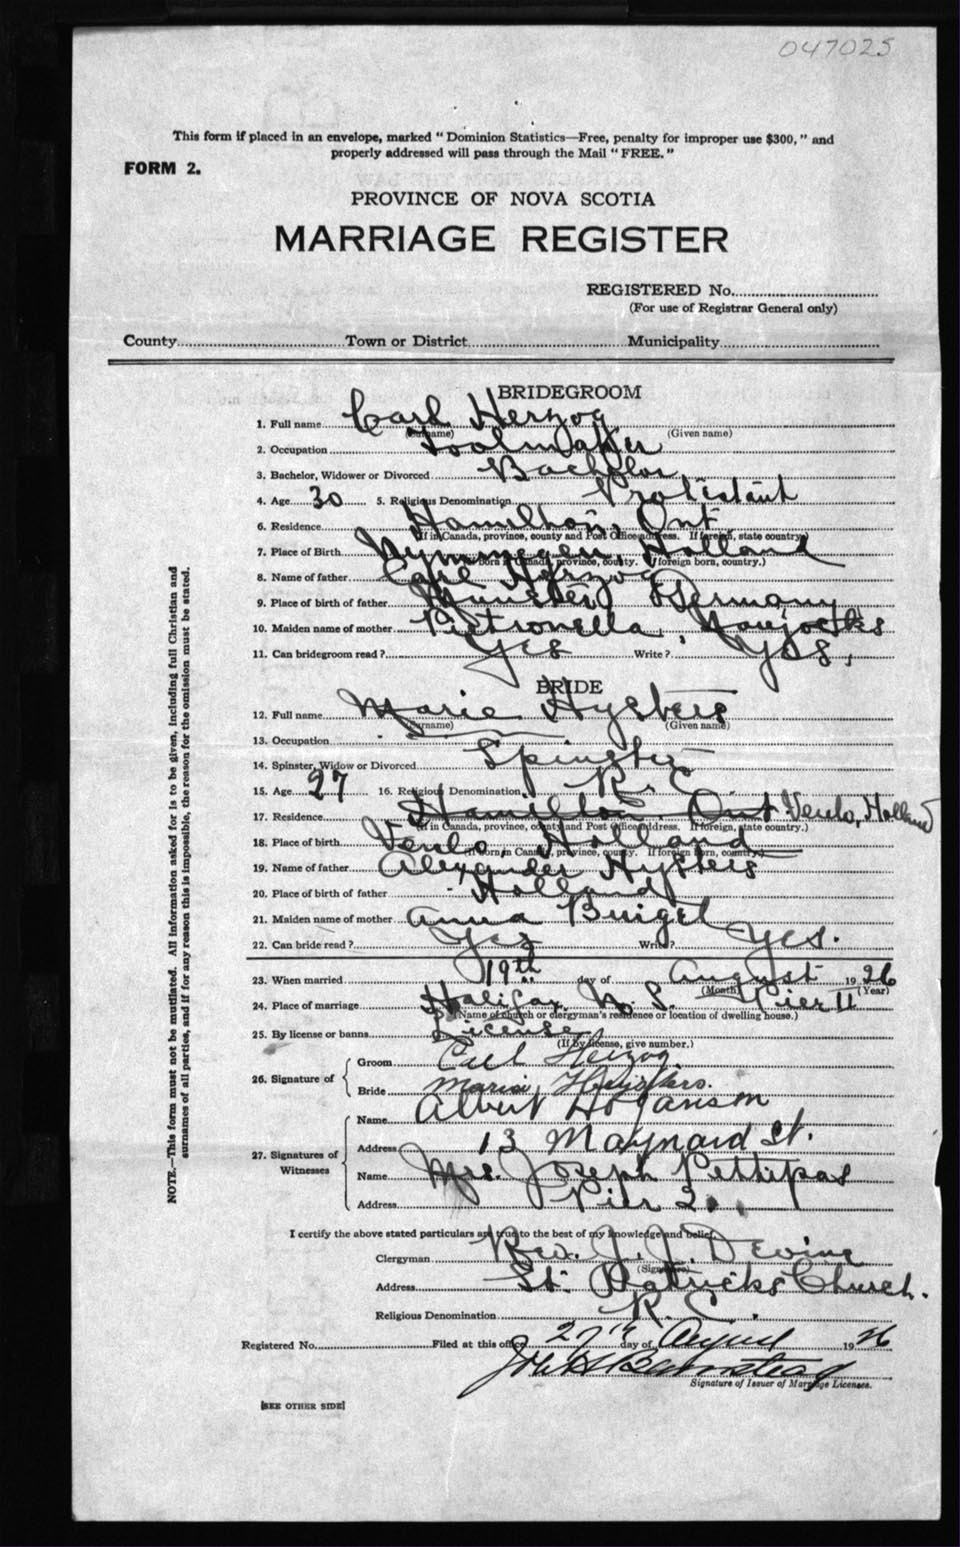 047025
This form if placed in an envelope, marked “ Dominion Statistics—Free, penalty for improper use $300, ” and
properly addressed will pass through the Mail “ FREE. ”
FORM 2.
PROVINCE OF NOVA SCOTIA
MARRIAGE REGISTER
REGISTERED No.
(For use of Registrar General only)
County Town or District Municipality
BRIDEGROOM
1. Full name Carl Herzog
(Surname) (Given name)
2. Occupation Toolmaker
3. Bachelor, Widower or Divorced Bachelor
4. Age 30 5. Religious Denomination Protistant
6. Residence Hamilton, Ont
(If in Canada, province, county and Post Office address. If foreign, state country.)
7. Place of Birth Nymmegen, Holland
(If born in Canada, province, county. If foreign born, country.)
8. Name of father Carl Herzog
9. Place of birth of father Munchen Germany
10. Maiden name of mother Pietronella
11. Can bridegroom read ? Yes Write ? Yes,
BRIDE
12. Full name Marie Hysters
(Surname) (Given name)
13. Occupation
14. Spinster, Widow or Divorced Spinster
15. Age 27 16. Religious Denomination R. C
17. Residence Hamilton. Ont Venlo, Holland
(If in Canada, province, county and Post Office address. If foreign, state country.)
18. Place of birth Venlo, Holland
(If born in Canada, province, county. If foreign born, country.)
19. Name of father Alexander Hysters
20. Place of birth of father Holland
21. Maiden name of mother Anna
22. Can bride read ? Yes Write ? Yes.
23. When married 19th day of August 1926
(Month) (Year)
24. Place of marriage Halifax N. S. Pier II
(Name of church or clergyman's residence or location of dwelling house.)
25. By license or banns License
(If by license, give number.)
26. Signature of
Groom Carl Herzog
Bride
27. Signatures of Witnesses
Name Albert Hoganson
Address 13 Maynard St.
Name Mrs. Joseph Pettipas
Address Pier 2.
I certify the above stated particulars are true to the best of my knowledge and belief.
Clergyman Rev. J. J. Devine
(Signature)
Address St. Patricks Church.
Religious Denomination R. C.
Registered No. Filed at this office 27th day of August 1926
Signature of Issuer of Marriage Licenses.
[SEE OTHER SIDE]
NOTE.—This form must not be mutilated. All information asked for is to be given, including full Christian and
surnames of all parties, and if for any reason this is impossible, the reason for the omission must be stated.